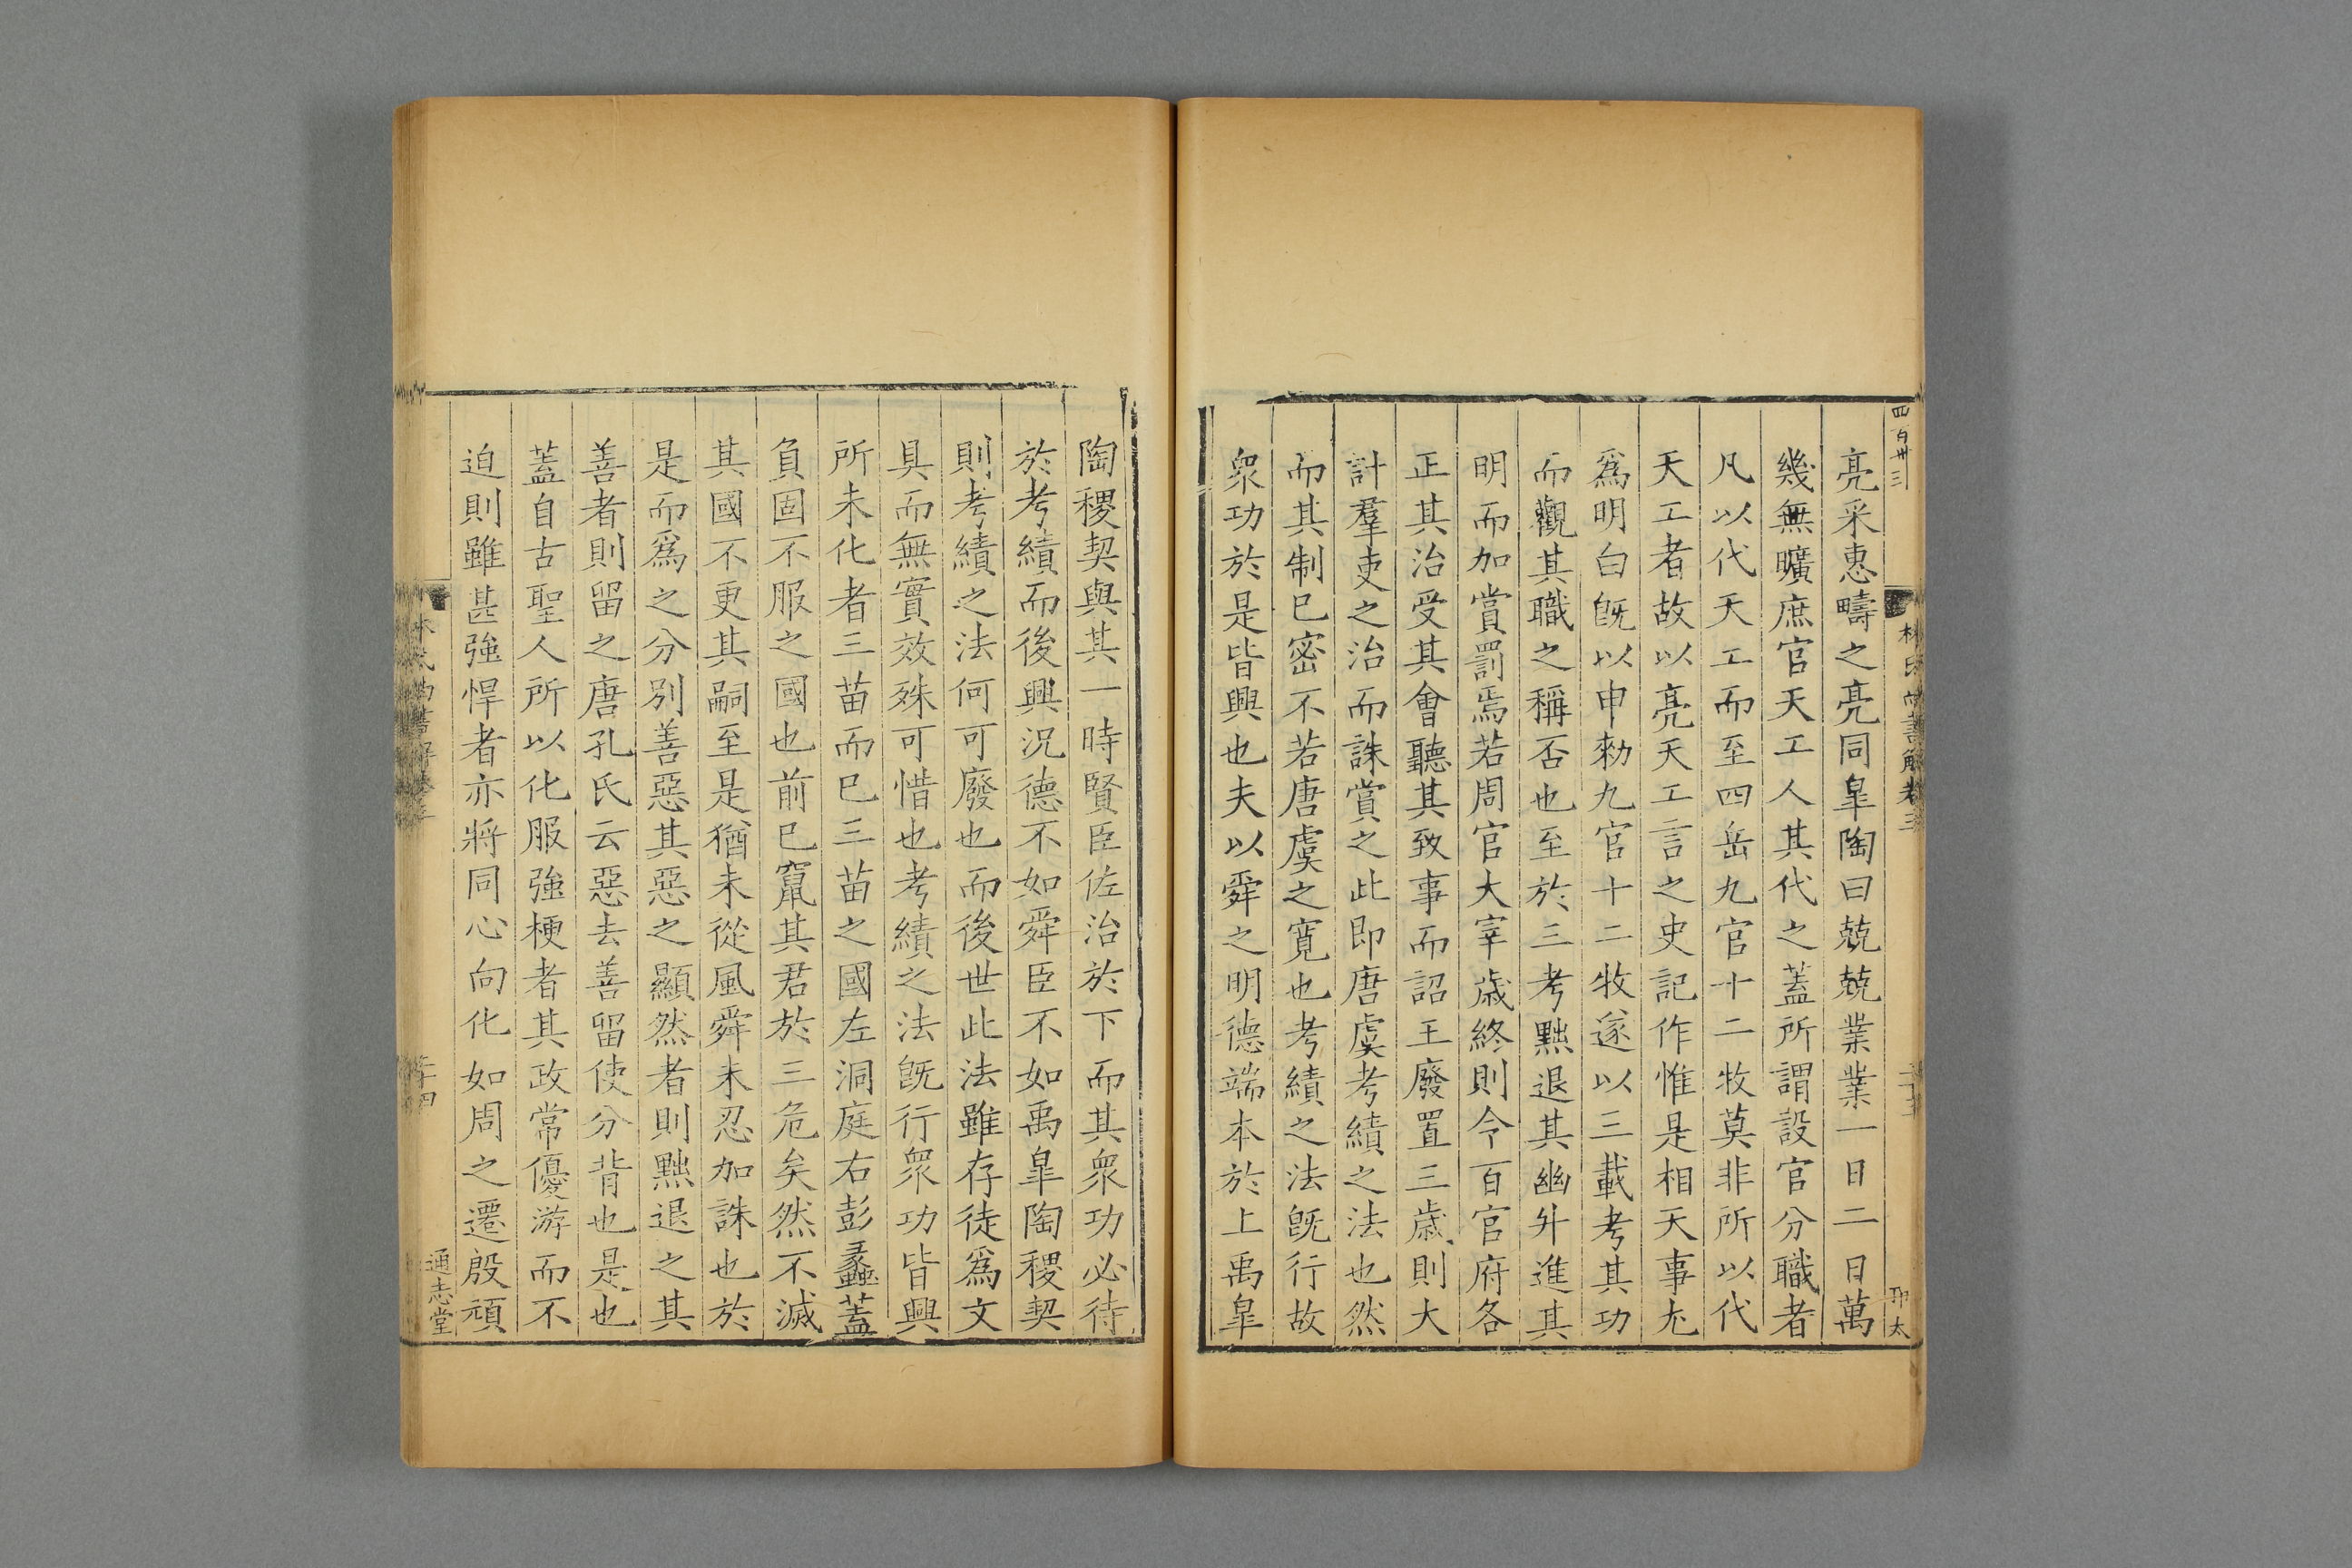 四百卅三
林氏尚書解卷三
亮采惠疇之亮同臯陶曰兢兢業業一日二日萬
幾無曠庶官天工人其代之蓋所謂設官分職者
凡以代天工而至四岳九官十二牧莫非所以代
天工者故以亮天工言之史記作惟是相天事尢
爲明白旣以申勑九官十二牧遂以三載考其功
而觀其職之稱否也至於三考黜退其幽升進其
明而加賞罰焉若周官大宰歲終則令百官府各
正其治受其會聽其致事而詔王廢置三歲則大
計羣吏之治而誅賞之此即唐虞考績之法也然
而其制已密不若唐虞之寬也考績之法旣行故
衆功於是皆興也夫以舜之明德端本於上禹臯
陶稷契與其一時賢臣佐治於下而其衆功必待
於考績而後興況德不如舜臣不如禹臯陶稷契
則考績之法何可廢也而後世此法雖存徒爲文
具而無實效殊可惜也考績之法旣行衆功皆興
所未化者三苗而已三苗之國左洞庭右彭蠡蓋
負固不服之國也前已竄其君於三危矣然不滅
其國不更其嗣至是猶未從風舜未忍加誅也於
是而爲之分別善惡其惡之顯然者則黜退之其
善者則留之唐孔氏云惡去善留使分背也是也
蓋自古聖人所以化服強梗者其政常優游而不
迫則雖甚強悍者亦將同心向化如周之遷殷頑
二十四
通志堂